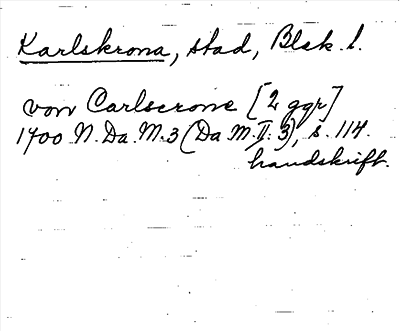 Karlskrona, stad, Blek. l.
von Carlscrone [2 ggr]
1700 N. Da. M. 3 (Da M. II: 3), s. 114.
handskrift.